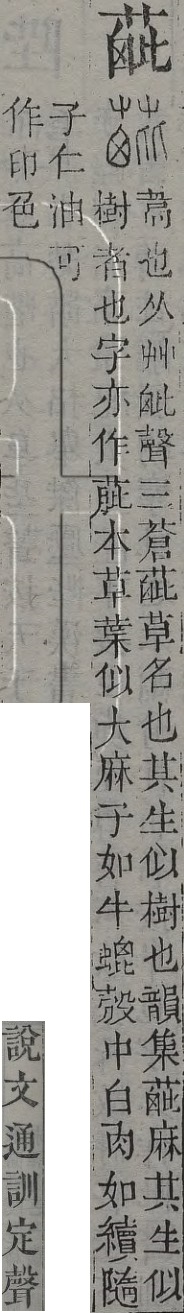 𦳈
蒿也从艸𣬈聲三蒼𦳈草名也其生似樹也韻集𦳈麻其生似
樹者也字亦作蓖本草葉似大麻子如牛螕殼中白肉如續隨
子仁油可
作印色
說文通訓定聲